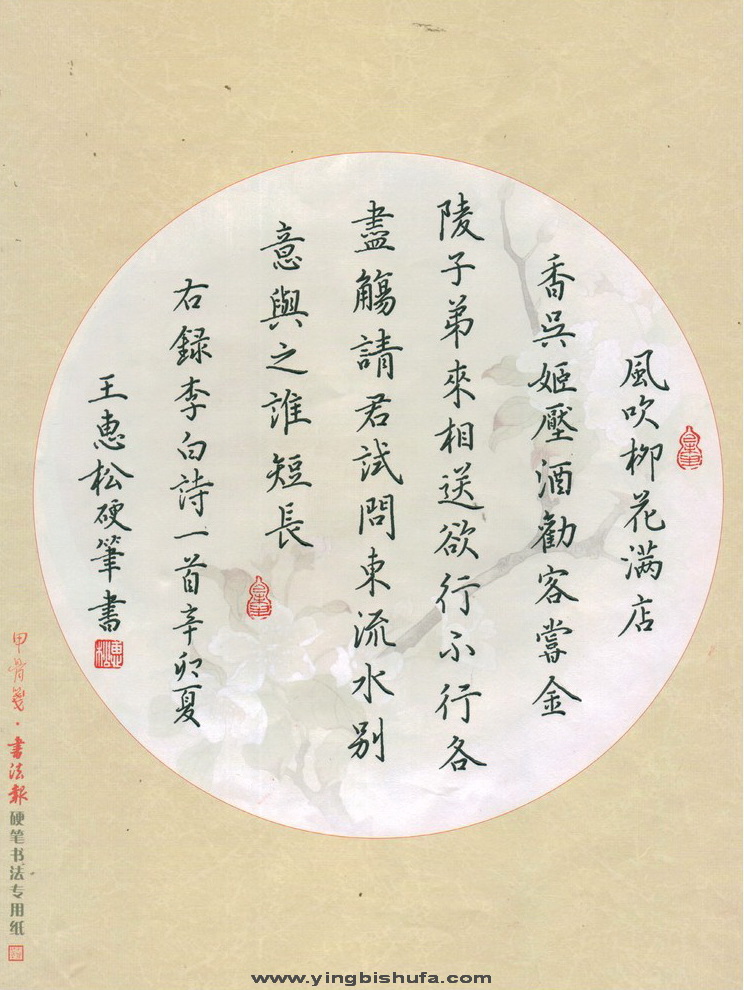 風吹柳花满店
香吳姬壓酒勸客嘗金
陵子弟來相送欲行不行各
盡觴請君試問東流水别
意與之誰短長
右録李白詩一首辛卯夏
王惠松硬筆書
甲骨箋·書法報硬笔书法专用纸
www.yingbishufa.com